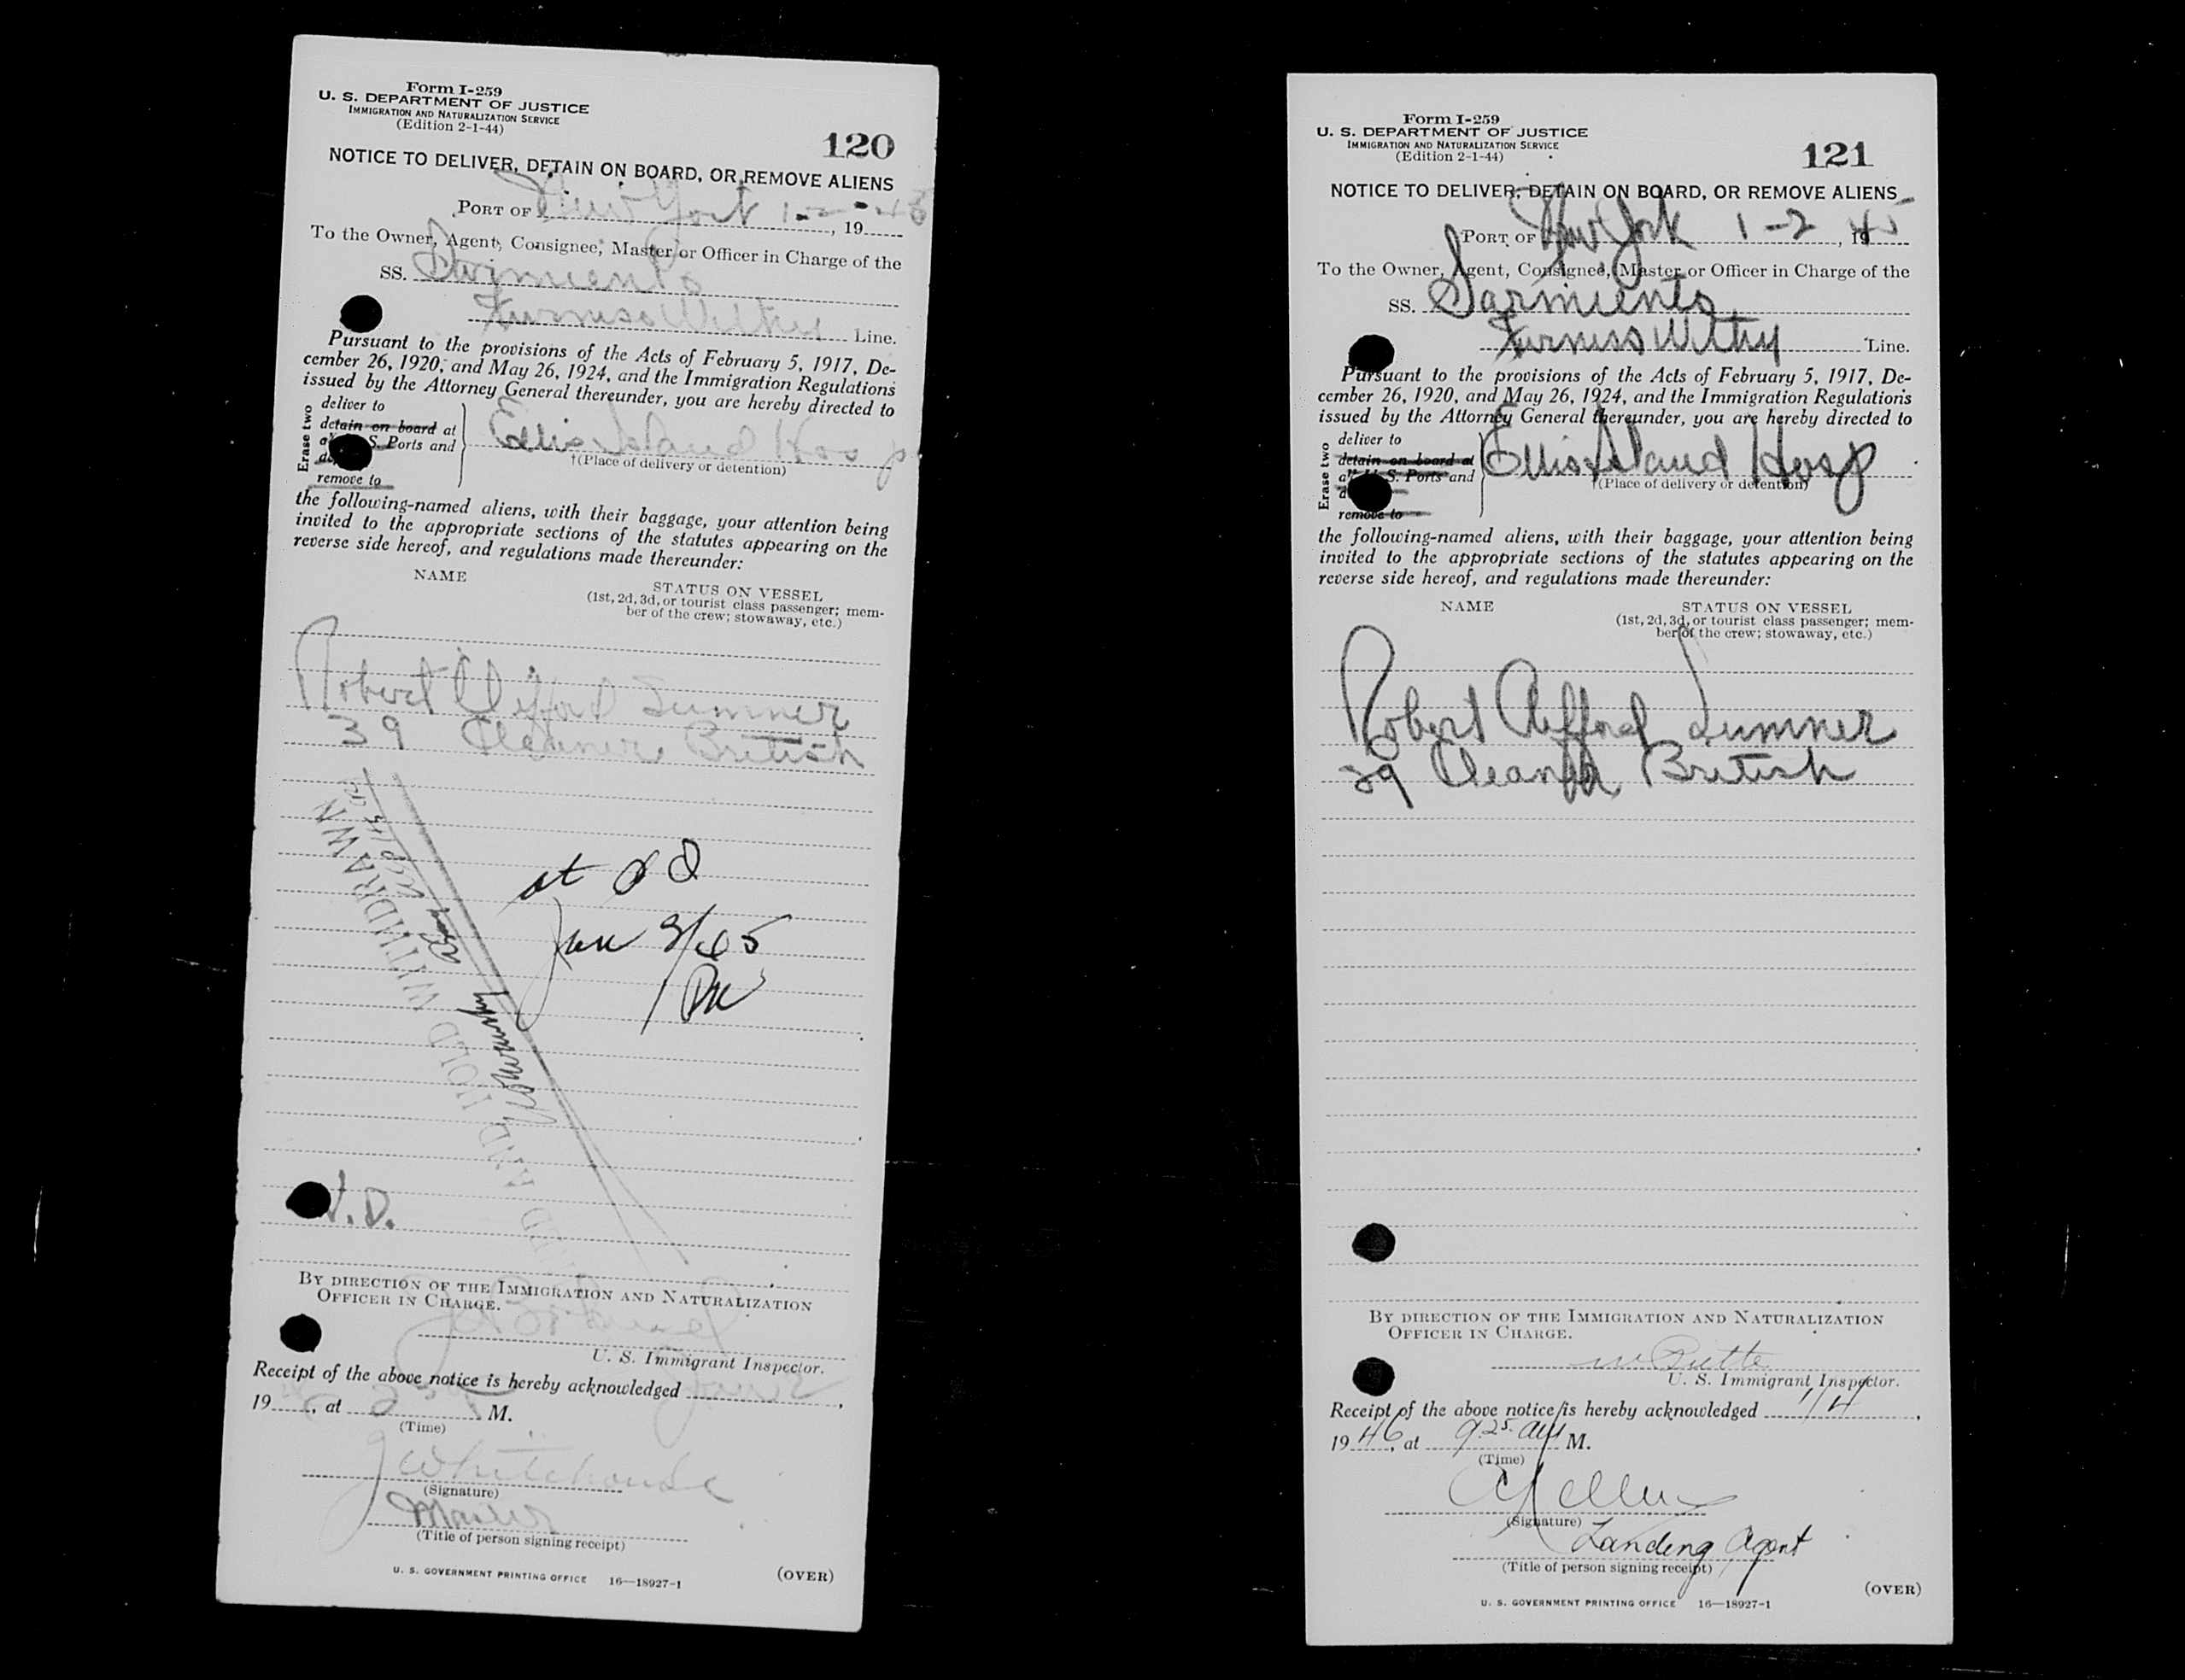 Form I-259
U. S. DEPARTMENT OF JUSTICE
IMMIGRATION AND NATURALIZATION SERVICE
(Edition 2-1-44)
120
NOTICE TO DELIVER, DETAIN ON BOARD, OR REMOVE ALIENS
PORT OF New York 1-2-45, 19
To the Owner, Agent, Consignee, Master or Officer in Charge of the
SS. Sarmiento
Furness Withy Line.
Pursuant to the provisions of the Acts of February 5, 1917, De-
cember 26, 1920, and May 26, 1924, and the Immigration Regulations
issued by the Attorney General thereunder, you are hereby directed to
Erase two
deliver to
detain on board at
S. Ports and
remove to
Ellis Island Hosp
†(Place of delivery or detention)
the following-named aliens, with their baggage, your attention being
invited to the appropriate sections of the statutes appearing on the
reverse side hereof, and regulations made thereunder:
NAME
STATUS ON VESSEL
(1st, 2d, 3d, or tourist class passenger; mem-
ber of the crew; stowaway, etc.)
Robert Clifford Sumner
39 Cleaner British
WITHDRAWN
at
Jan 3/45
AND HOLD
V.D.
BY DIRECTION OF THE IMMIGRATION AND NATURALIZATION
OFFICER IN CHARGE.
U. S. Immigrant Inspector.
Receipt of the above notice is hereby acknowledged Jan 2,
19, at M.
(Time)
J Whitehouse
(Signature)
Master
(Title of person signing receipt)
U. S. GOVERNMENT PRINTING OFFICE 16—18927-1
(OVER)
Form I-259
U. S. DEPARTMENT OF JUSTICE
IMMIGRATION AND NATURALIZATION SERVICE
(Edition 2-1-44)
121
NOTICE TO DELIVER, DETAIN ON BOARD, OR REMOVE ALIENS
PORT OF New York 1-2, 1945
To the Owner, Agent, Consignee, Master or Officer in Charge of the
SS. Sarmiento
Furness Withy Line.
Pursuant to the provisions of the Acts of February 5, 1917, De-
cember 26, 1920, and May 26, 1924, and the Immigration Regulations
issued by the Attorney General thereunder, you are hereby directed to
Erase two
deliver to
detain on board at
S. Ports and
remove to
Ellis Island Hosp
†(Place of delivery or detention)
the following-named aliens, with their baggage, your attention being
invited to the appropriate sections of the statutes appearing on the
reverse side hereof, and regulations made thereunder:
NAME
STATUS ON VESSEL
(1st, 2d, 3d, or tourist class passenger; mem-
ber of the crew; stowaway, etc.)
Robert Clifford Sumner
39 Cleaner British
BY DIRECTION OF THE IMMIGRATION AND NATURALIZATION
OFFICER IN CHARGE.
U. S. Immigrant Inspector.
Receipt of the above notice is hereby acknowledged 1/4,
1946, at 9.25 AM M.
(Time)
(Signature)
Landing Agent
(Title of person signing receipt)
U. S. GOVERNMENT PRINTING OFFICE 16—18927-1
(OVER)